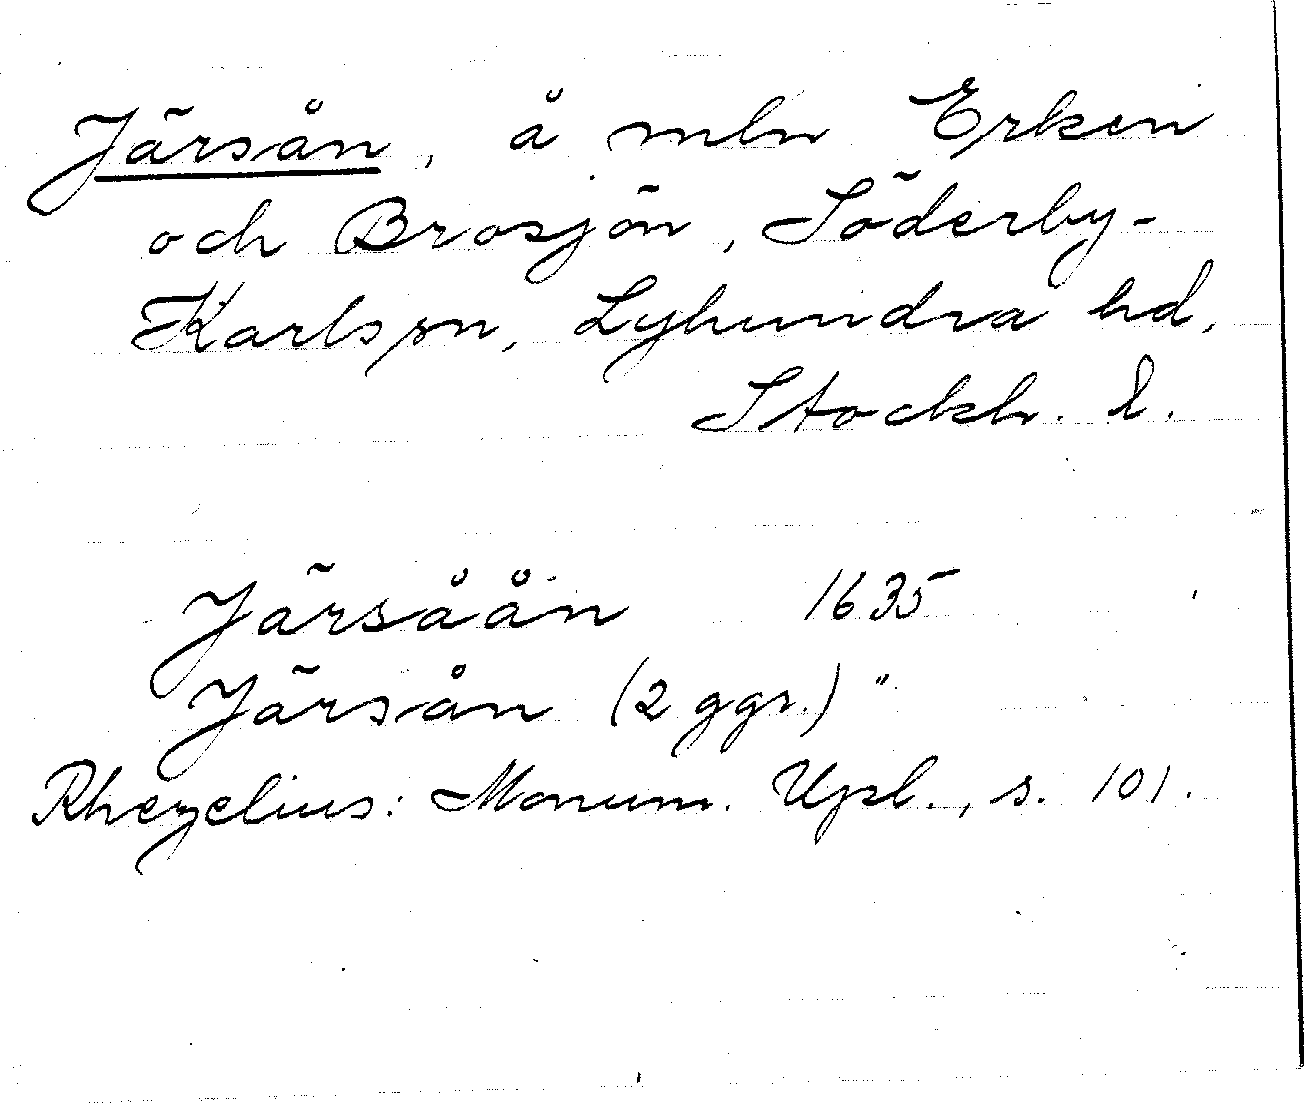 Järsån, å mln Erken
och Brosjön, Söderby-
Karlsson, Lyhundra hd,
Stockh. l.
Järsåån 1635
Järsån (2 ggr.) "
Rhezelius: Monum. Upl., s. 101.